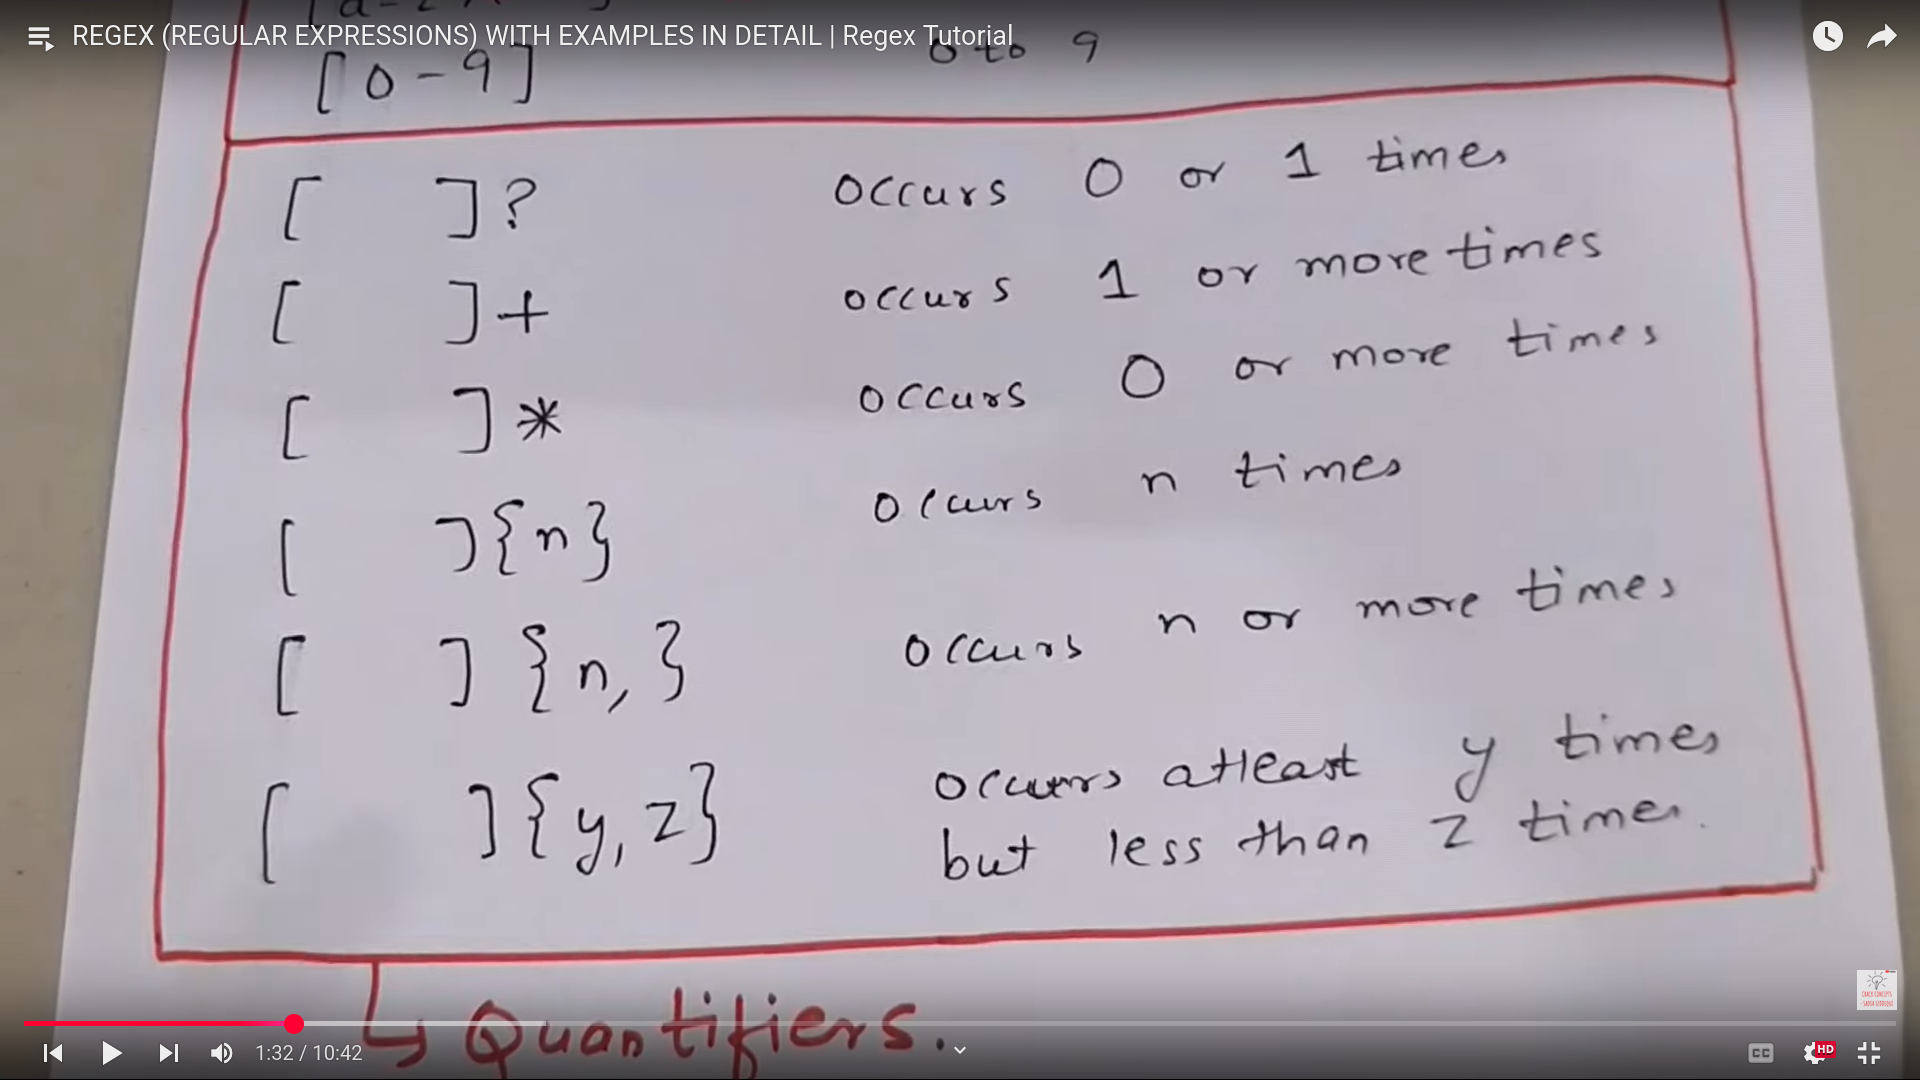 REGEX (REGULAR EXPRESSIONS) WITH EXAMPLES IN DETAIL | Regex Tutorial
[0-9] 0 to 9
[ ]? occurs 0 or 1 times
[ ]+ occurs 1 or more times
[ ]* occurs 0 or more times
[ ]{n} occurs n times
[ ]{n,} occurs n or more times
[ ]{y,z} occurs atleast y times
but less than z times.
Quantifiers.
1:32 / 10:42
CC
HD